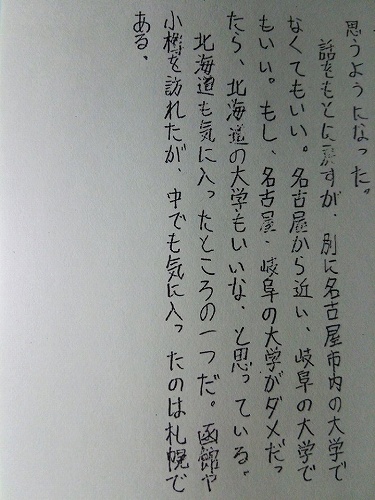 思うようになった。
話をもとに戻すが、別に名古屋市内の大学で
なくてもいい。名古屋から近い、岐阜の大学で
もいい。もし、名古屋、岐阜の大学がダメだっ
たら、北海道の大学もいいな、と思っている。
北海道も気に入ったところの一つだ。函館や
小樽を訪れたが、中でも気に入ったのは札幌で
ある、